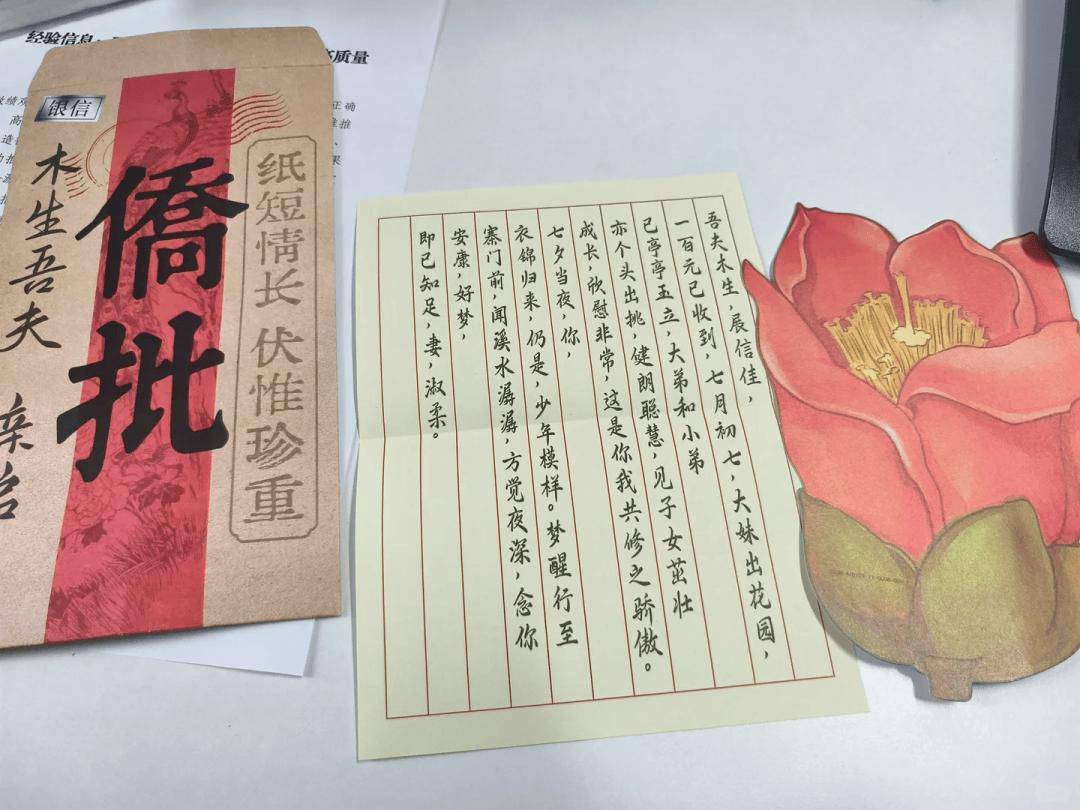 经验信息
质量
正确
银信
僑批
木生吾夫
亲启
纸短情长 伏惟珍重
吾夫木生，展信佳，
一百元已收到，七月初七，大妹出花园，
已亭亭玉立，大弟和小弟
亦个头出挑，健朗聪慧，见子女茁壮
成长，欣慰非常，这是你我共修之骄傲。
七夕当夜，你，
衣锦归来，仍是，少年模样。梦醒行至
寨门前，闻溪水潺潺，方觉夜深，念你
安康，好梦，
即已知足，妻，淑柔。